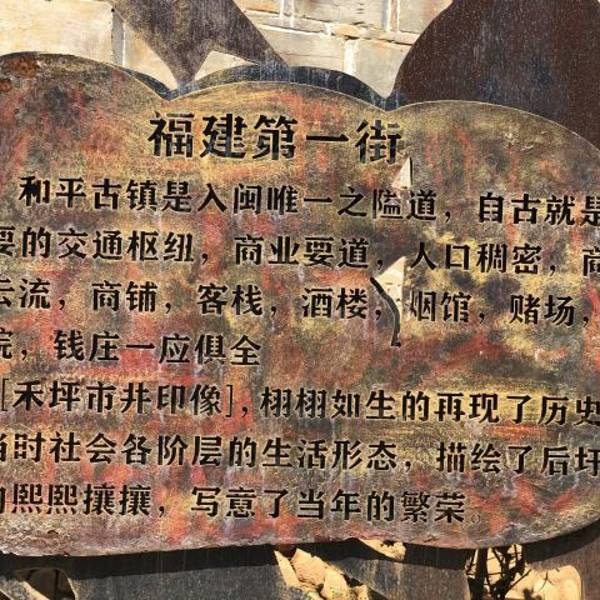 福建第一街
和平古镇是入闽唯一之隘道，自古就是
要的交通枢纽，商业要道，人口稠密，商
云流，商铺，客栈，酒楼，烟馆，赌场，
院，钱庄一应俱全
[禾坪市井印像]，栩栩如生的再现了历史
当时社会各阶层的生活形态，描绘了后圩
的熙熙攘攘，写意了当年的繁荣。